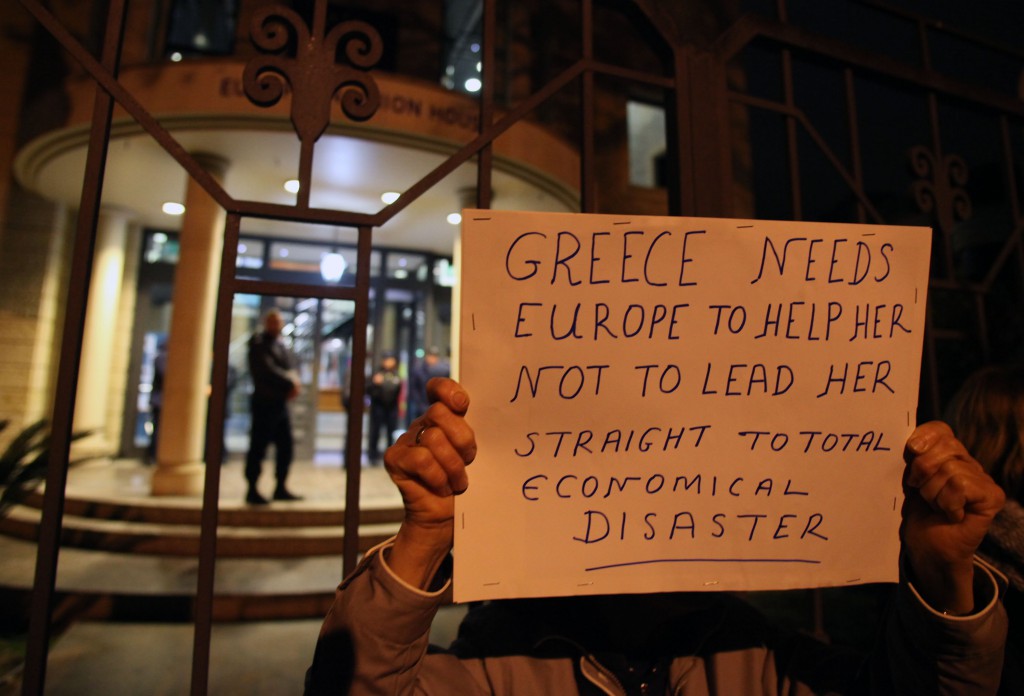 EU ION HOU
GREECE NEEDS
EUROPE TO HELP HER
NOT TO LEAD HER
STRAIGHT TO TOTAL
ECONOMICAL
DISASTER